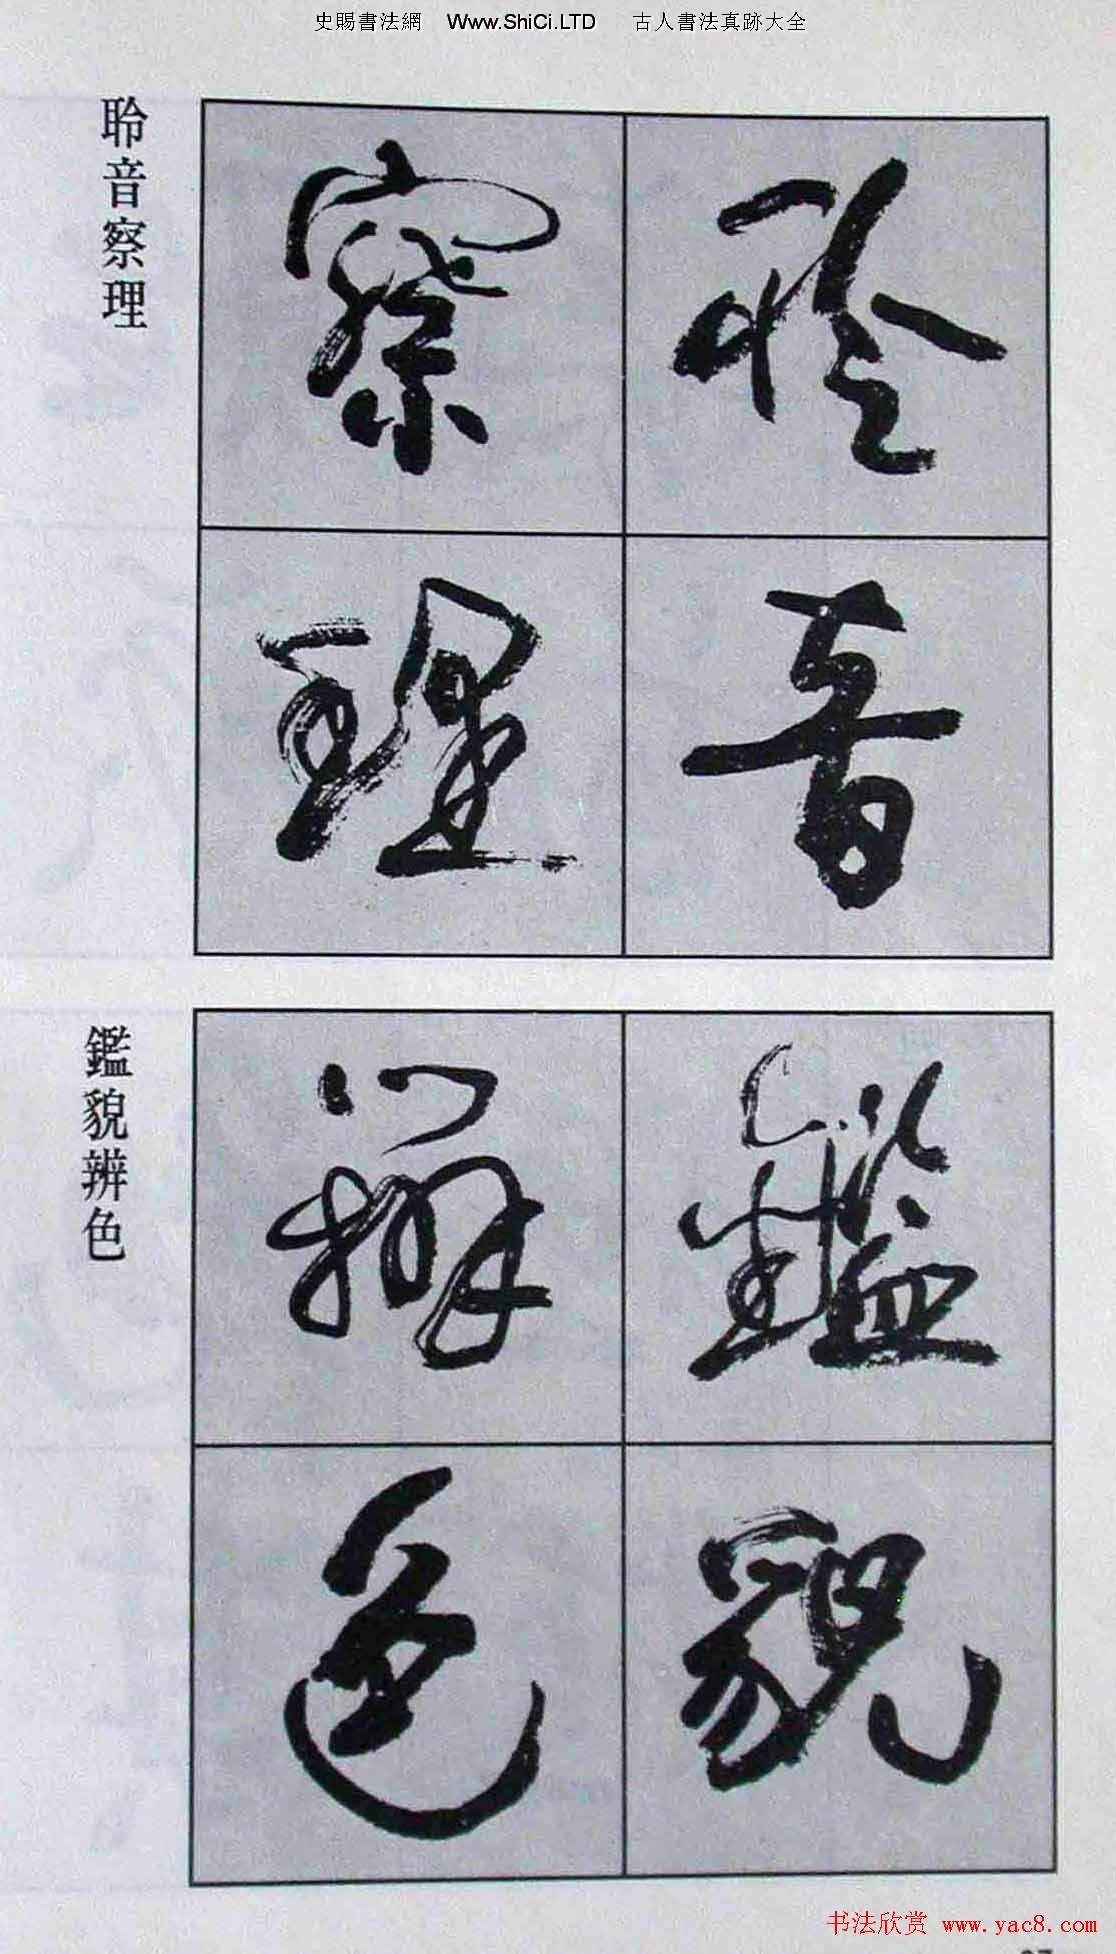 史賜書法網 Www.ShiCi.LTD 古人書法真跡大全
聆音
察理
聆音察理
鑑貌
辨色
鑑貌辨色
书法欣赏 www.yac8.com